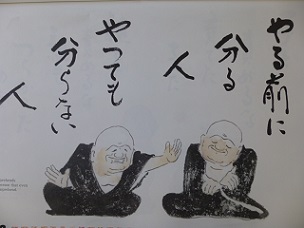 やる前に
分る
人
やっても
分らない
人